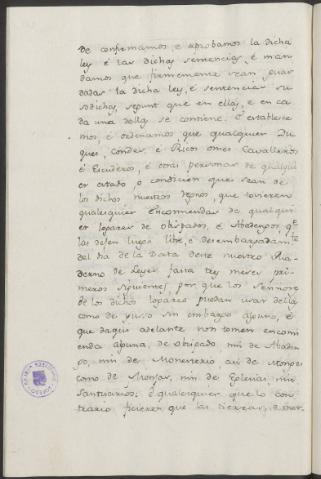 de confirmamos, é aprobamos la dicha
ley é las dichas sentencias, é man
damos que firmemente sean guar
dadas la dicha ley, é sentencias su
sodichas, segunt que en ellas, é en ca
da una dellas se contiene. E establece
mos, é ordenamos que qualquier Du
ques, Condes, é Ricos omes Cavalleros
é Escuderos, é otras personas de qualqui
er estado, o condicion que sean de
los dichos nuestros Regnos, que tovieren
qualesquier Encomiendas de qualqui
er logares de obispados, é Abadengos, qe
las dejen luego libre, é desembargadamte
del dia de la Data deste nuestro Qua
derno de Leyes fasta tres meses pri
meros siguientes, por que los Sennores
de los dichos logares puedan usar dellas
como de suyo sin embargo alguno, é
que daqui adelante non tomen encomi
enda alguna, de obispado, nin de Abaden
go, nin de Monesterio, asi de Monges
como de Monjas, nin de Eglesias, nin
Santuarios; é qualesquier que lo con
trario ficieren que las tierras, é mer